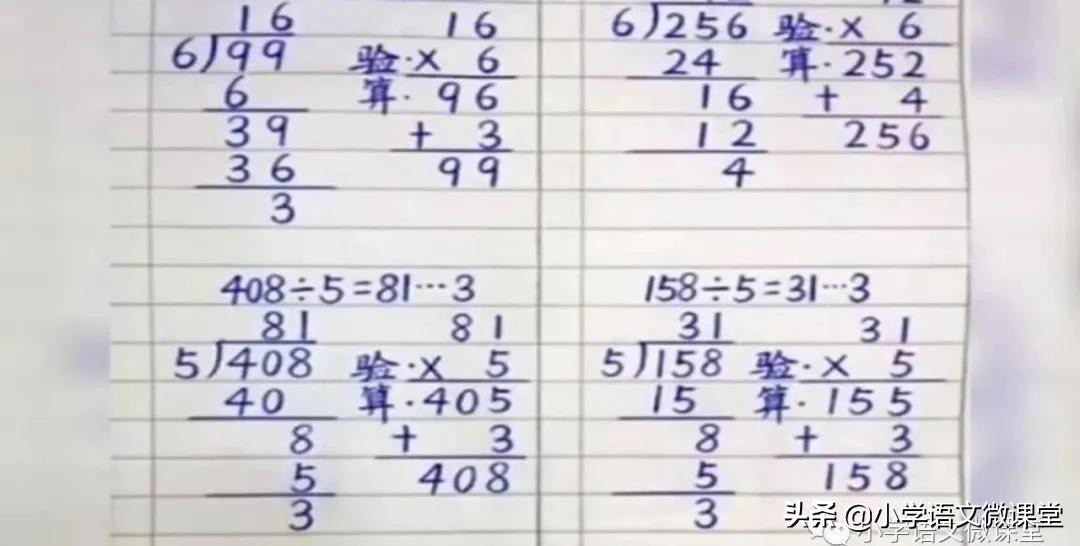 16
6)99
6
39
36
3
16
验·× 6
算·96
+ 3
99
6)256
24
16
12
4
验·× 6
算·252
+ 4
256
408÷5=81…3
81
5)408
40
8
5
3
81
验·× 5
算·405
+ 3
408
158÷5=31…3
31
5)158
15
8
5
3
31
验·× 5
算·155
+ 3
158
头条 @小学语文微课堂
小学语文微课堂